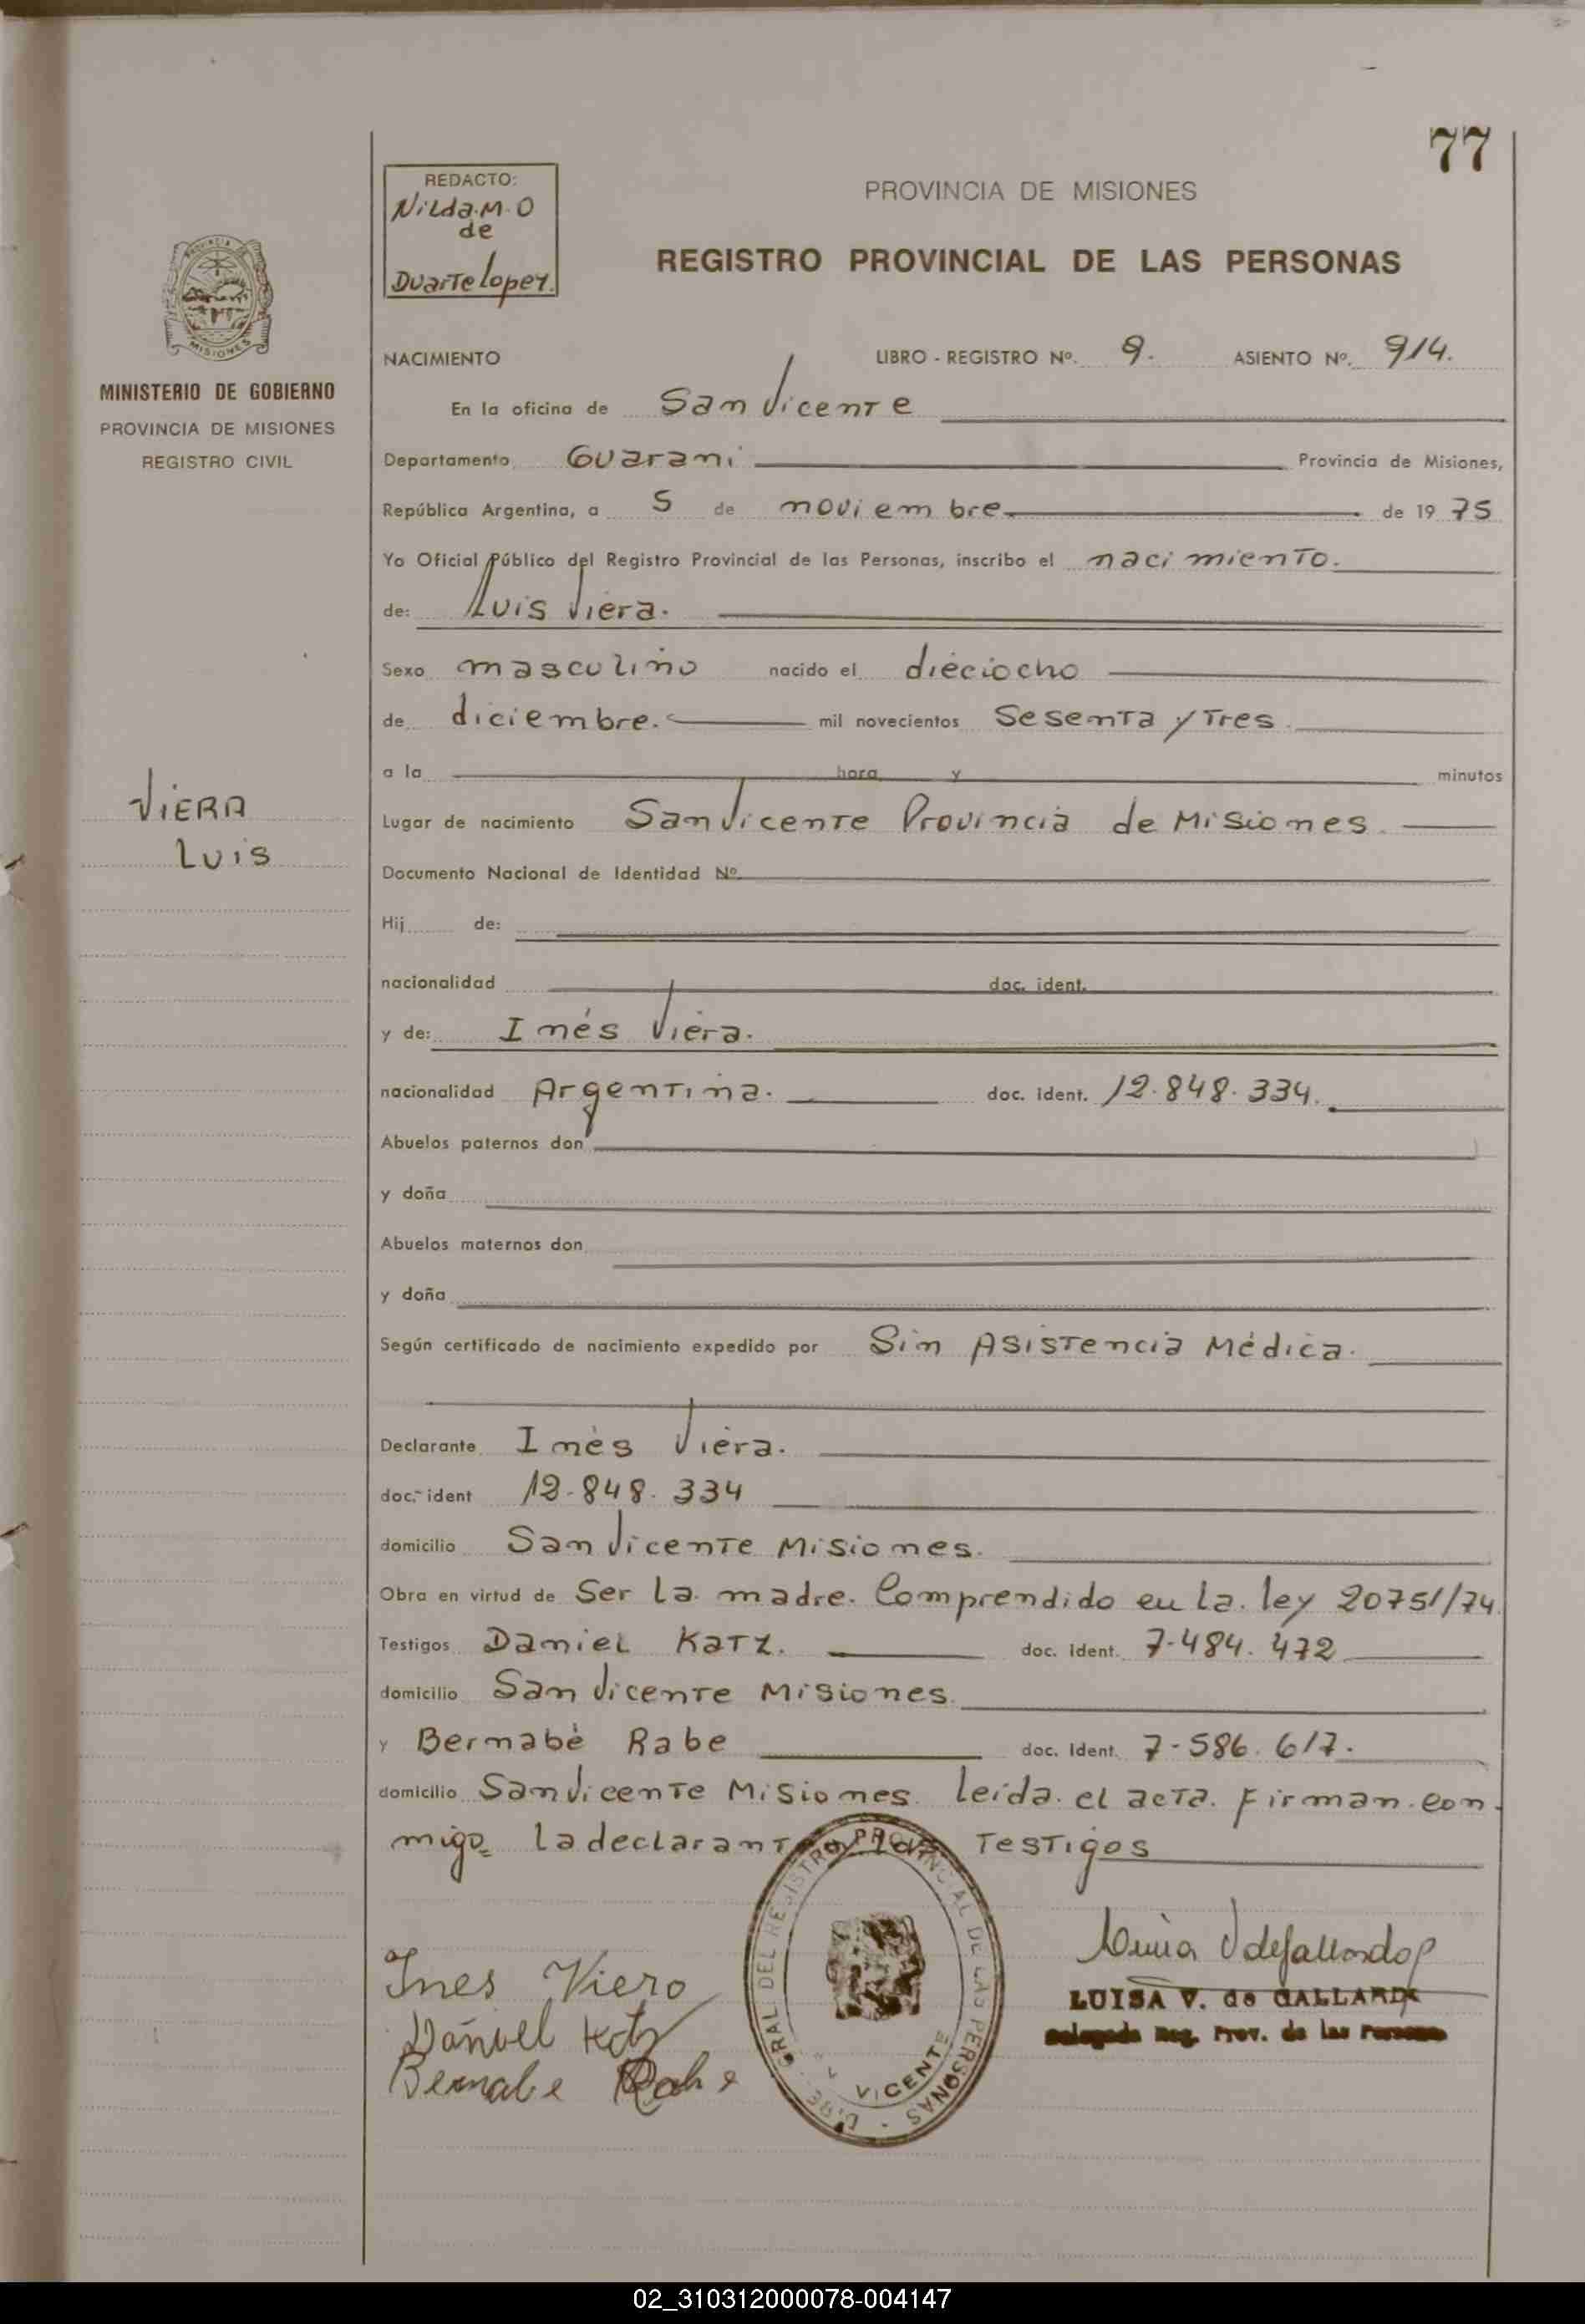 77
REDACTO:
Nilda.M.O
de
Duarte Lopez.
PROVINCIA DE MISIONES
REGISTRO PROVINCIAL DE LAS PERSONAS
PROVINCIA DE
MISIONES
MINISTERIO DE GOBIERNO
PROVINCIA DE MISIONES
REGISTRO CIVIL
VIERA
Luis
NACIMIENTO LIBRO - REGISTRO Nº. 9. ASIENTO Nº. 914.
En la oficina de San Vicente
Departamento Guarani Provincia de Misiones,
República Argentina, a 5 de noviembre de 19 75
Yo Oficial Público del Registro Provincial de las Personas, inscribo el nacimiento.
de: Luis Viera.
Sexo masculino nacido el dieciocho
de diciembre. mil novecientos Sesenta y Tres
a la hora y minutos
Lugar de nacimiento San Vicente Provincia de Misiones
Documento Nacional de Identidad Nº
Hij de:
nacionalidad doc. ident.
y de: Inés Viera.
nacionalidad Argentina. doc. ident. 12.848.334.
Abuelos paternos don
y doña
Abuelos maternos don
y doña
Según certificado de nacimiento expedido por Sin Asistencia Médica.
Declarante Inés Viera.
doc. ident 12.848.334
domicilio San Vicente Misiones.
Obra en virtud de Ser la madre. Comprendido en la ley 20751/74
Testigos Daniel Katz. doc. Ident. 7.484.472
domicilio San Vicente Misiones.
y Bernabé Rabe doc. Ident. 7.586.617.
domicilio San Vicente Misiones leida el acta. Firman con
migo= la declarante y los Testigos
Ines Viero
Daniel Katz
Bernabe Rabe
DIRE. GRAL DEL REGISTRO PROVINCIAL DE LAS PERSONAS
VICENTE
LUISA V. de GALLARDO
Delegada Reg. Prov. de las Personas
02_310312000078-004147